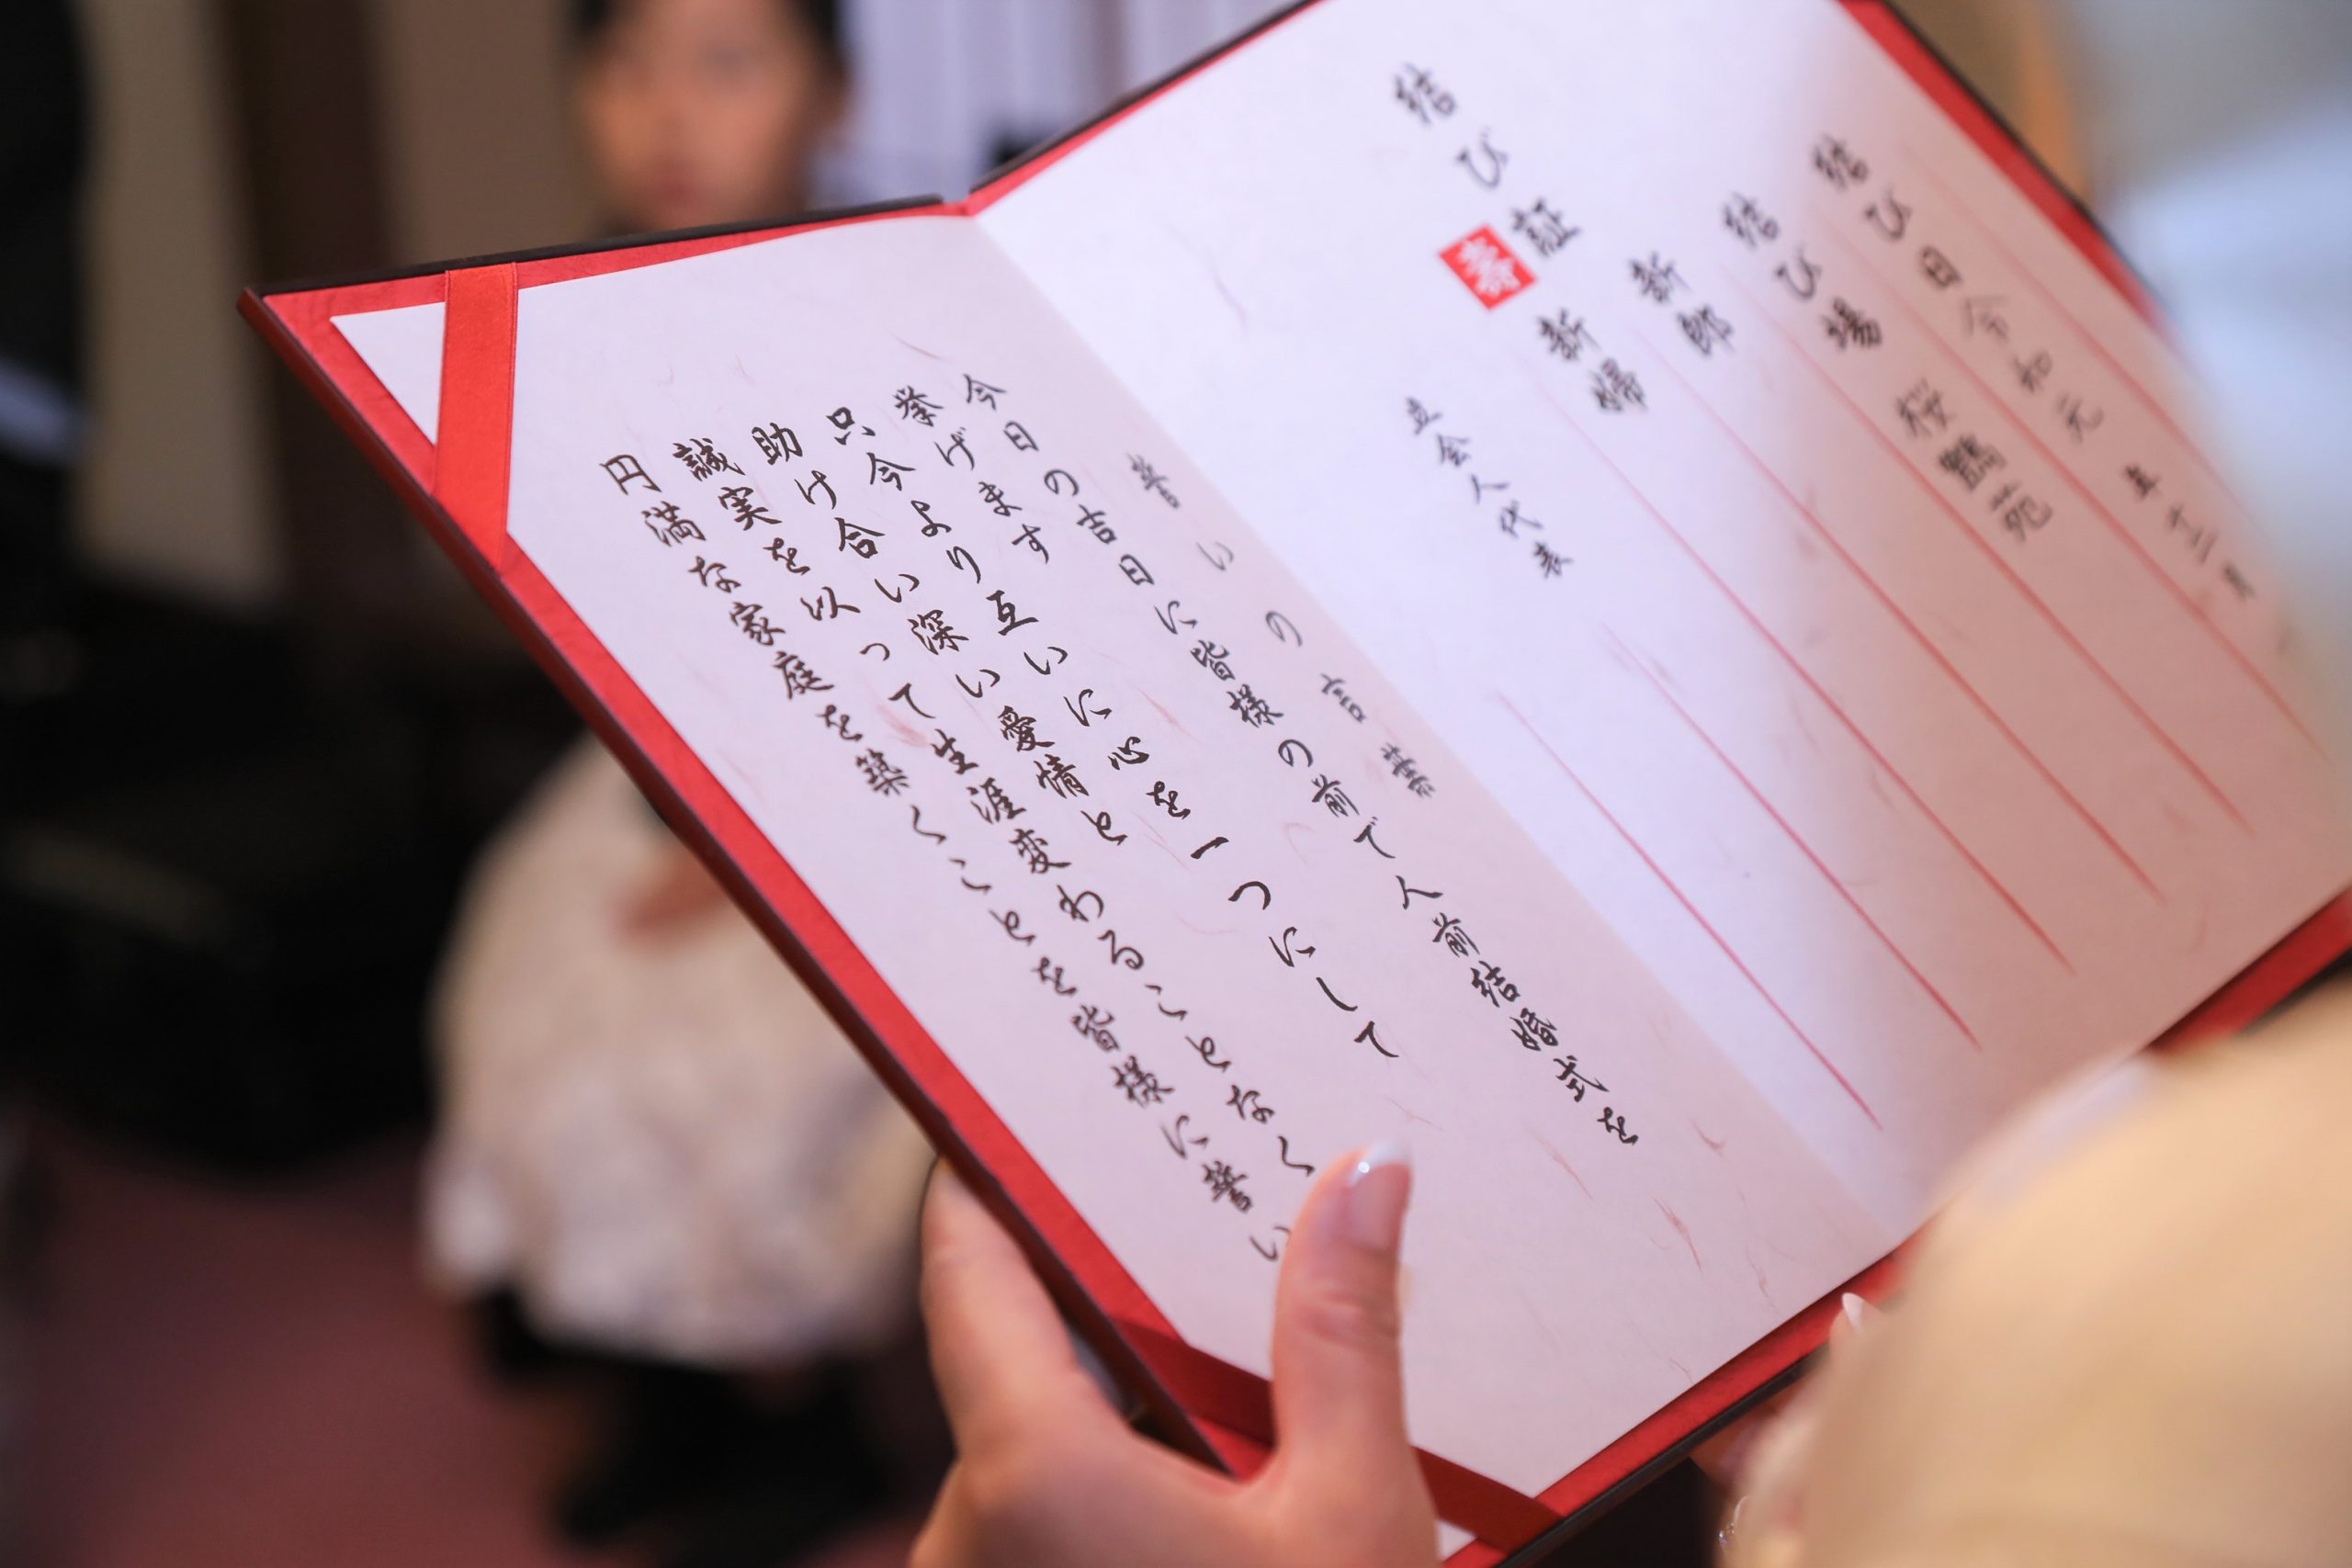 結び日 令和元年十二月
結び場 桜鶴苑
新郎
新婦
結び証
寿
立会人代表
誓いの言葉
今日の吉日に皆様の前で人前結婚式を
挙げます
只今より互いに心を一つにして
助け合い深い愛情と
誠実を以って生涯変わることなく
円満な家庭を築くことを皆様に誓い